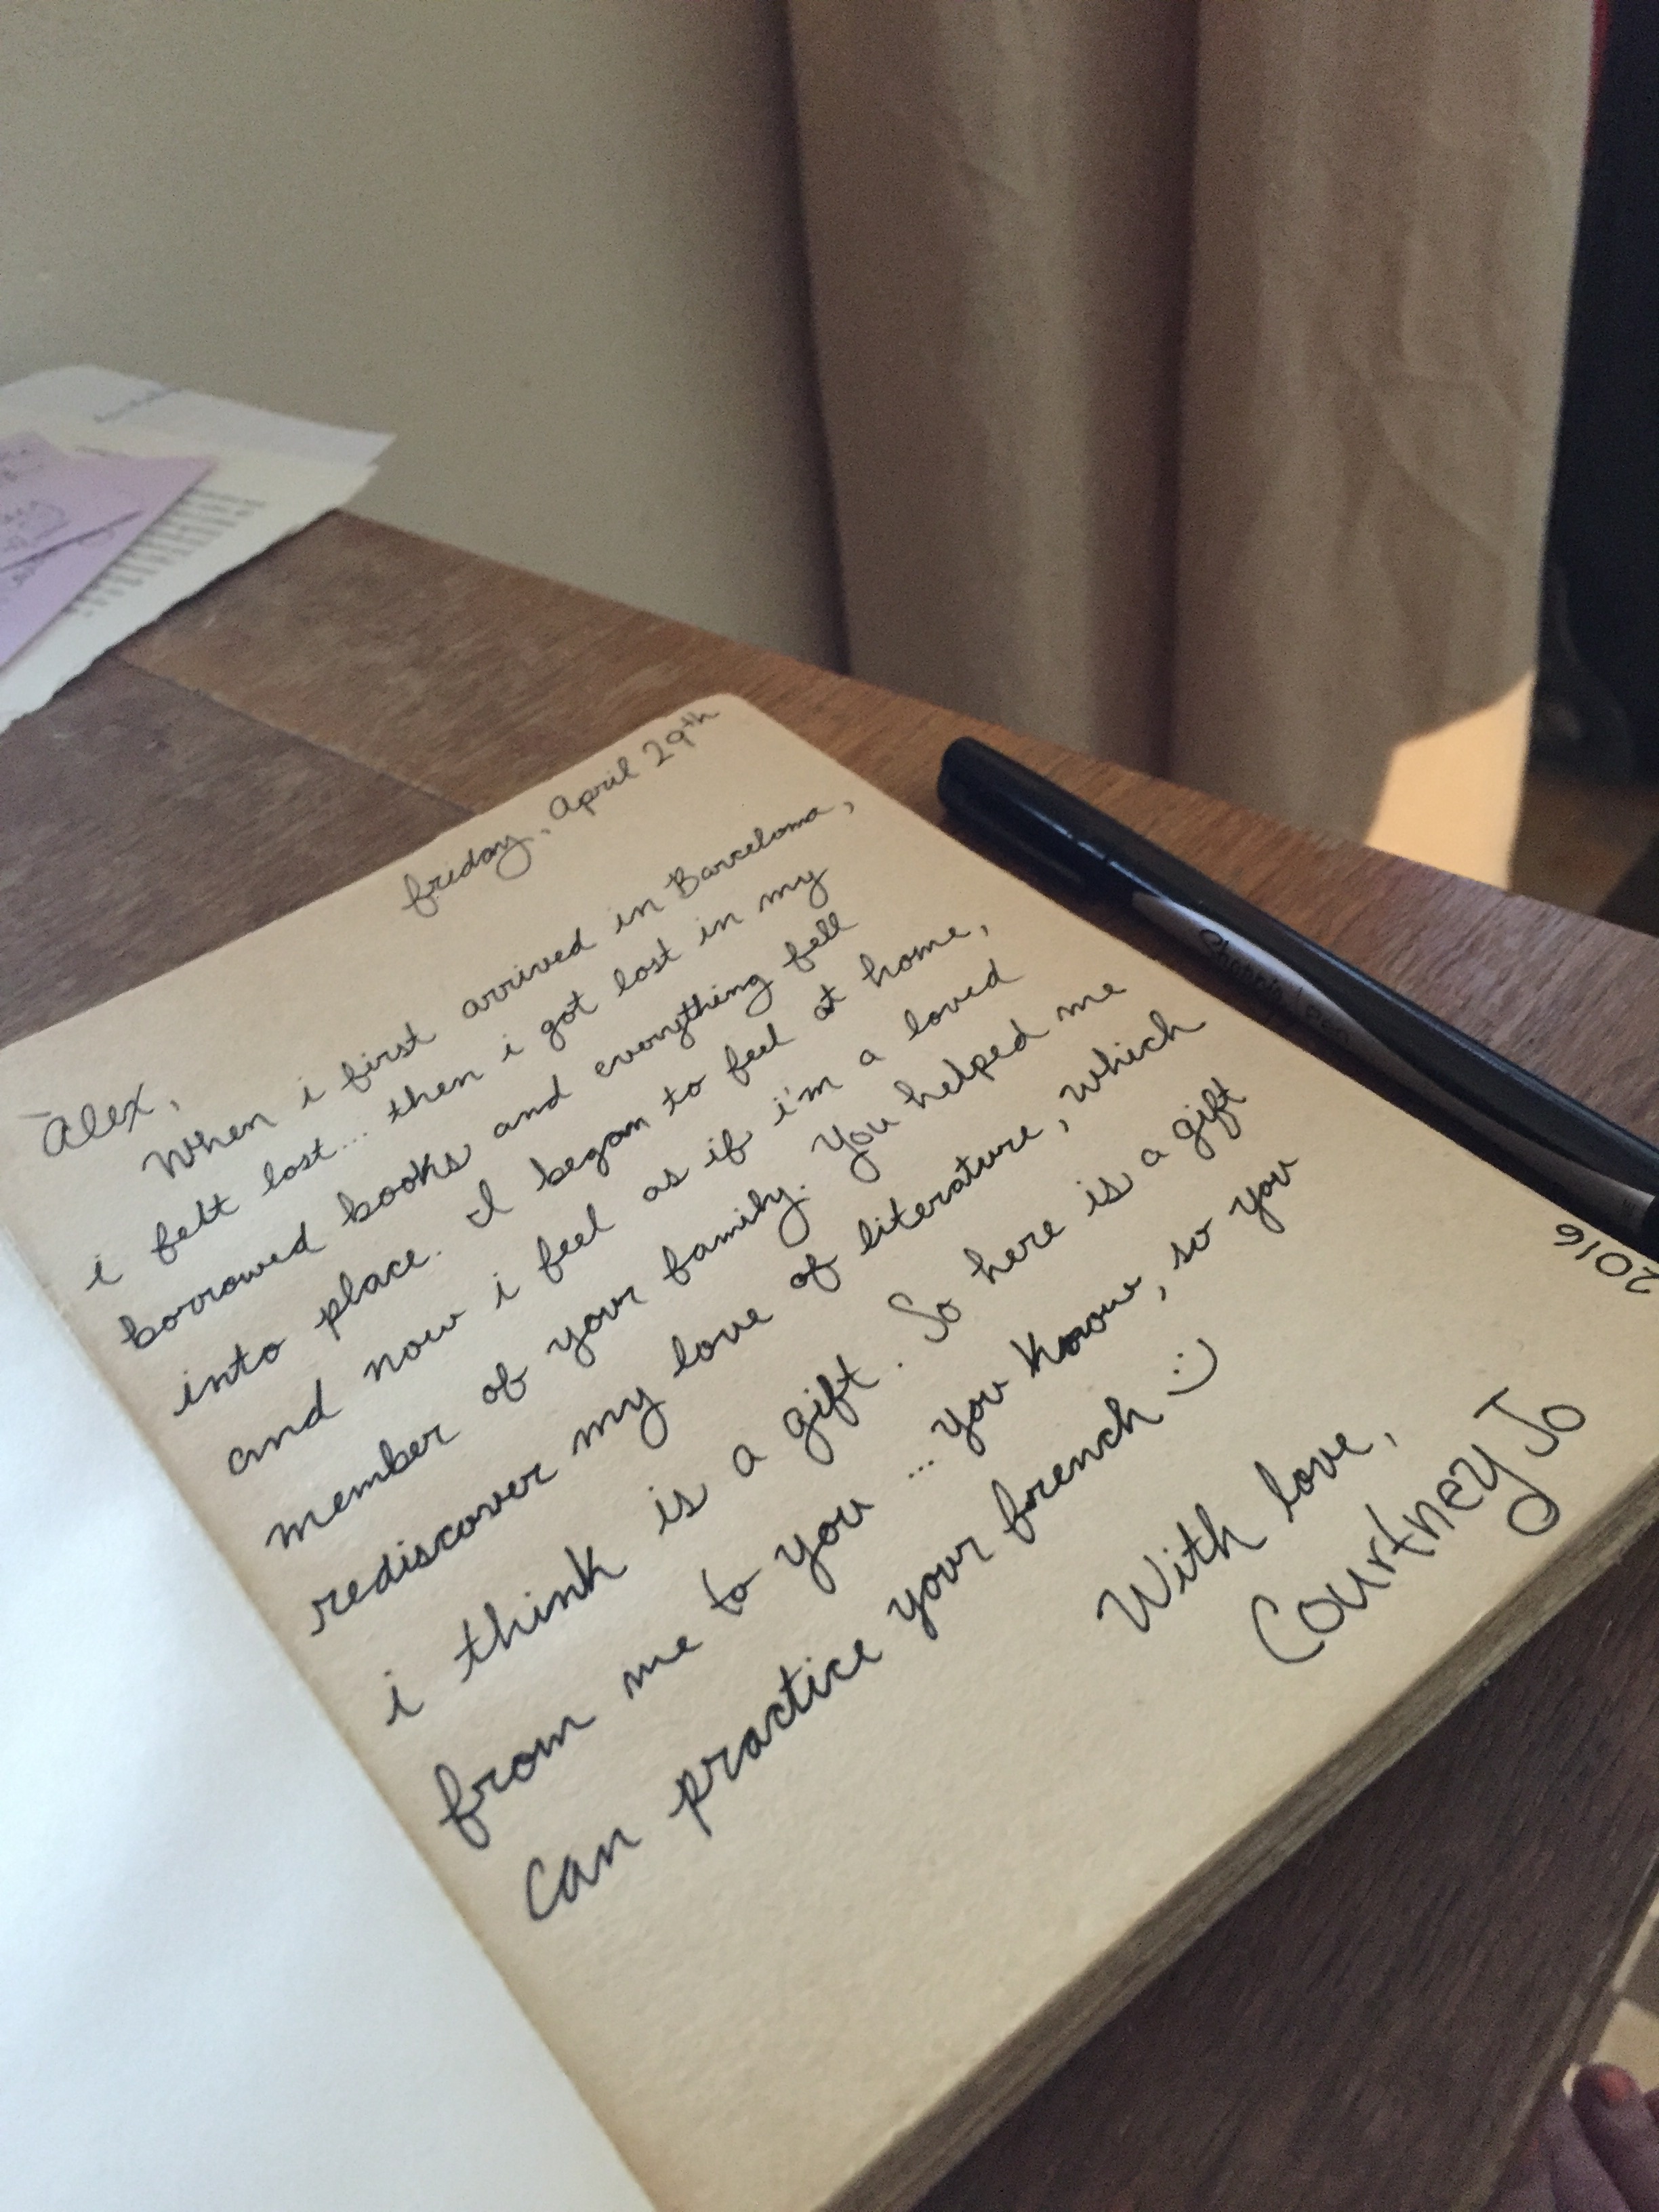 friday, April 29th
Alex,
When i first arrived in Barcelona,
i felt lost... then i got lost in my
borrowed books and everything fell
into place. I began to feel at home,
and now i feel as if i'm a loved
member of your family. You helped me
rediscover my love of literature, which
i think is a gift. So here is a gift
from me to you ... you know, so you
can practice your french :)
With love,
Courtney Jo
2016